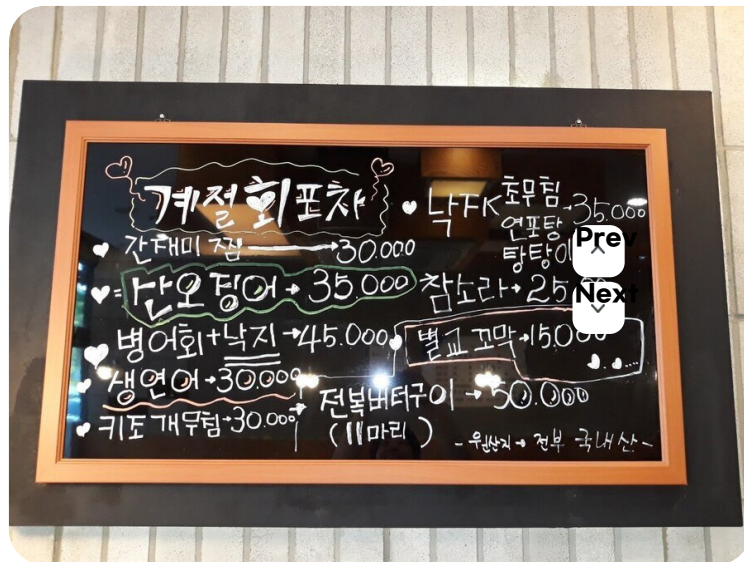 계절회포차
간재미 찜 → 30.000
산오징어 → 35.000
병어회+낙지 → 45.000
생연어 → 30.000
키조개무침 → 30.000
낙지 초무침 연포탕 → 35.000
참소라 → 25
별교 꼬막 → 15.000
전복버터구이 → 50.000
(11마리)
- 원산지 → 전부 국내산 -
Prev
Next